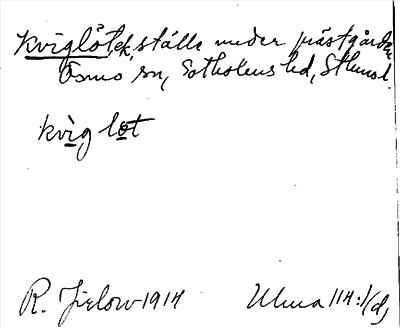 Kviglöt, ek, ställe under prästgården
Ösmo sn, Sotholens hd, Sthmsl.
kvìg löt
R. Jirlow 1914 Ulma 114:1(d)